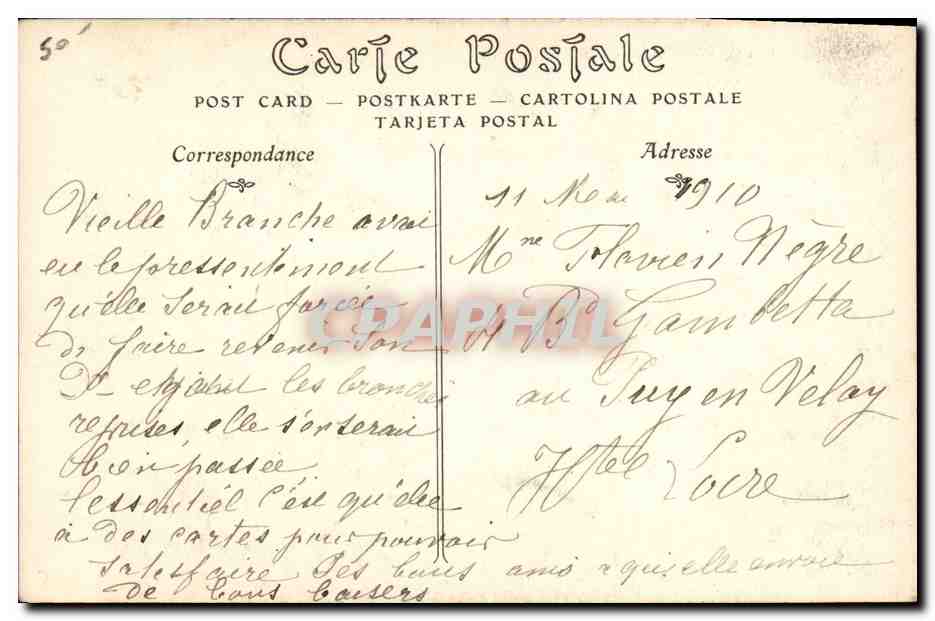 50
Carte Postale
POST CARD — POSTKARTE — CARTOLINA POSTALE
TARJETA POSTAL
Correspondance
Vieille Branche avai
eu le pressentiment
qu'elle serait forcée
de faire revenir son
Dr les bronches
reprises, elle s'en serait
bien passée
l'essentiel c'est qu'elle
a des cartes pour pouvoir
satisfaire ses bons amis a qui elle envoie
de bons baisers
Adresse
11 1910
Mme Flavien Nègre
Bd Gambetta
au Puy en Velay
Hte Loire
CPAPHIL